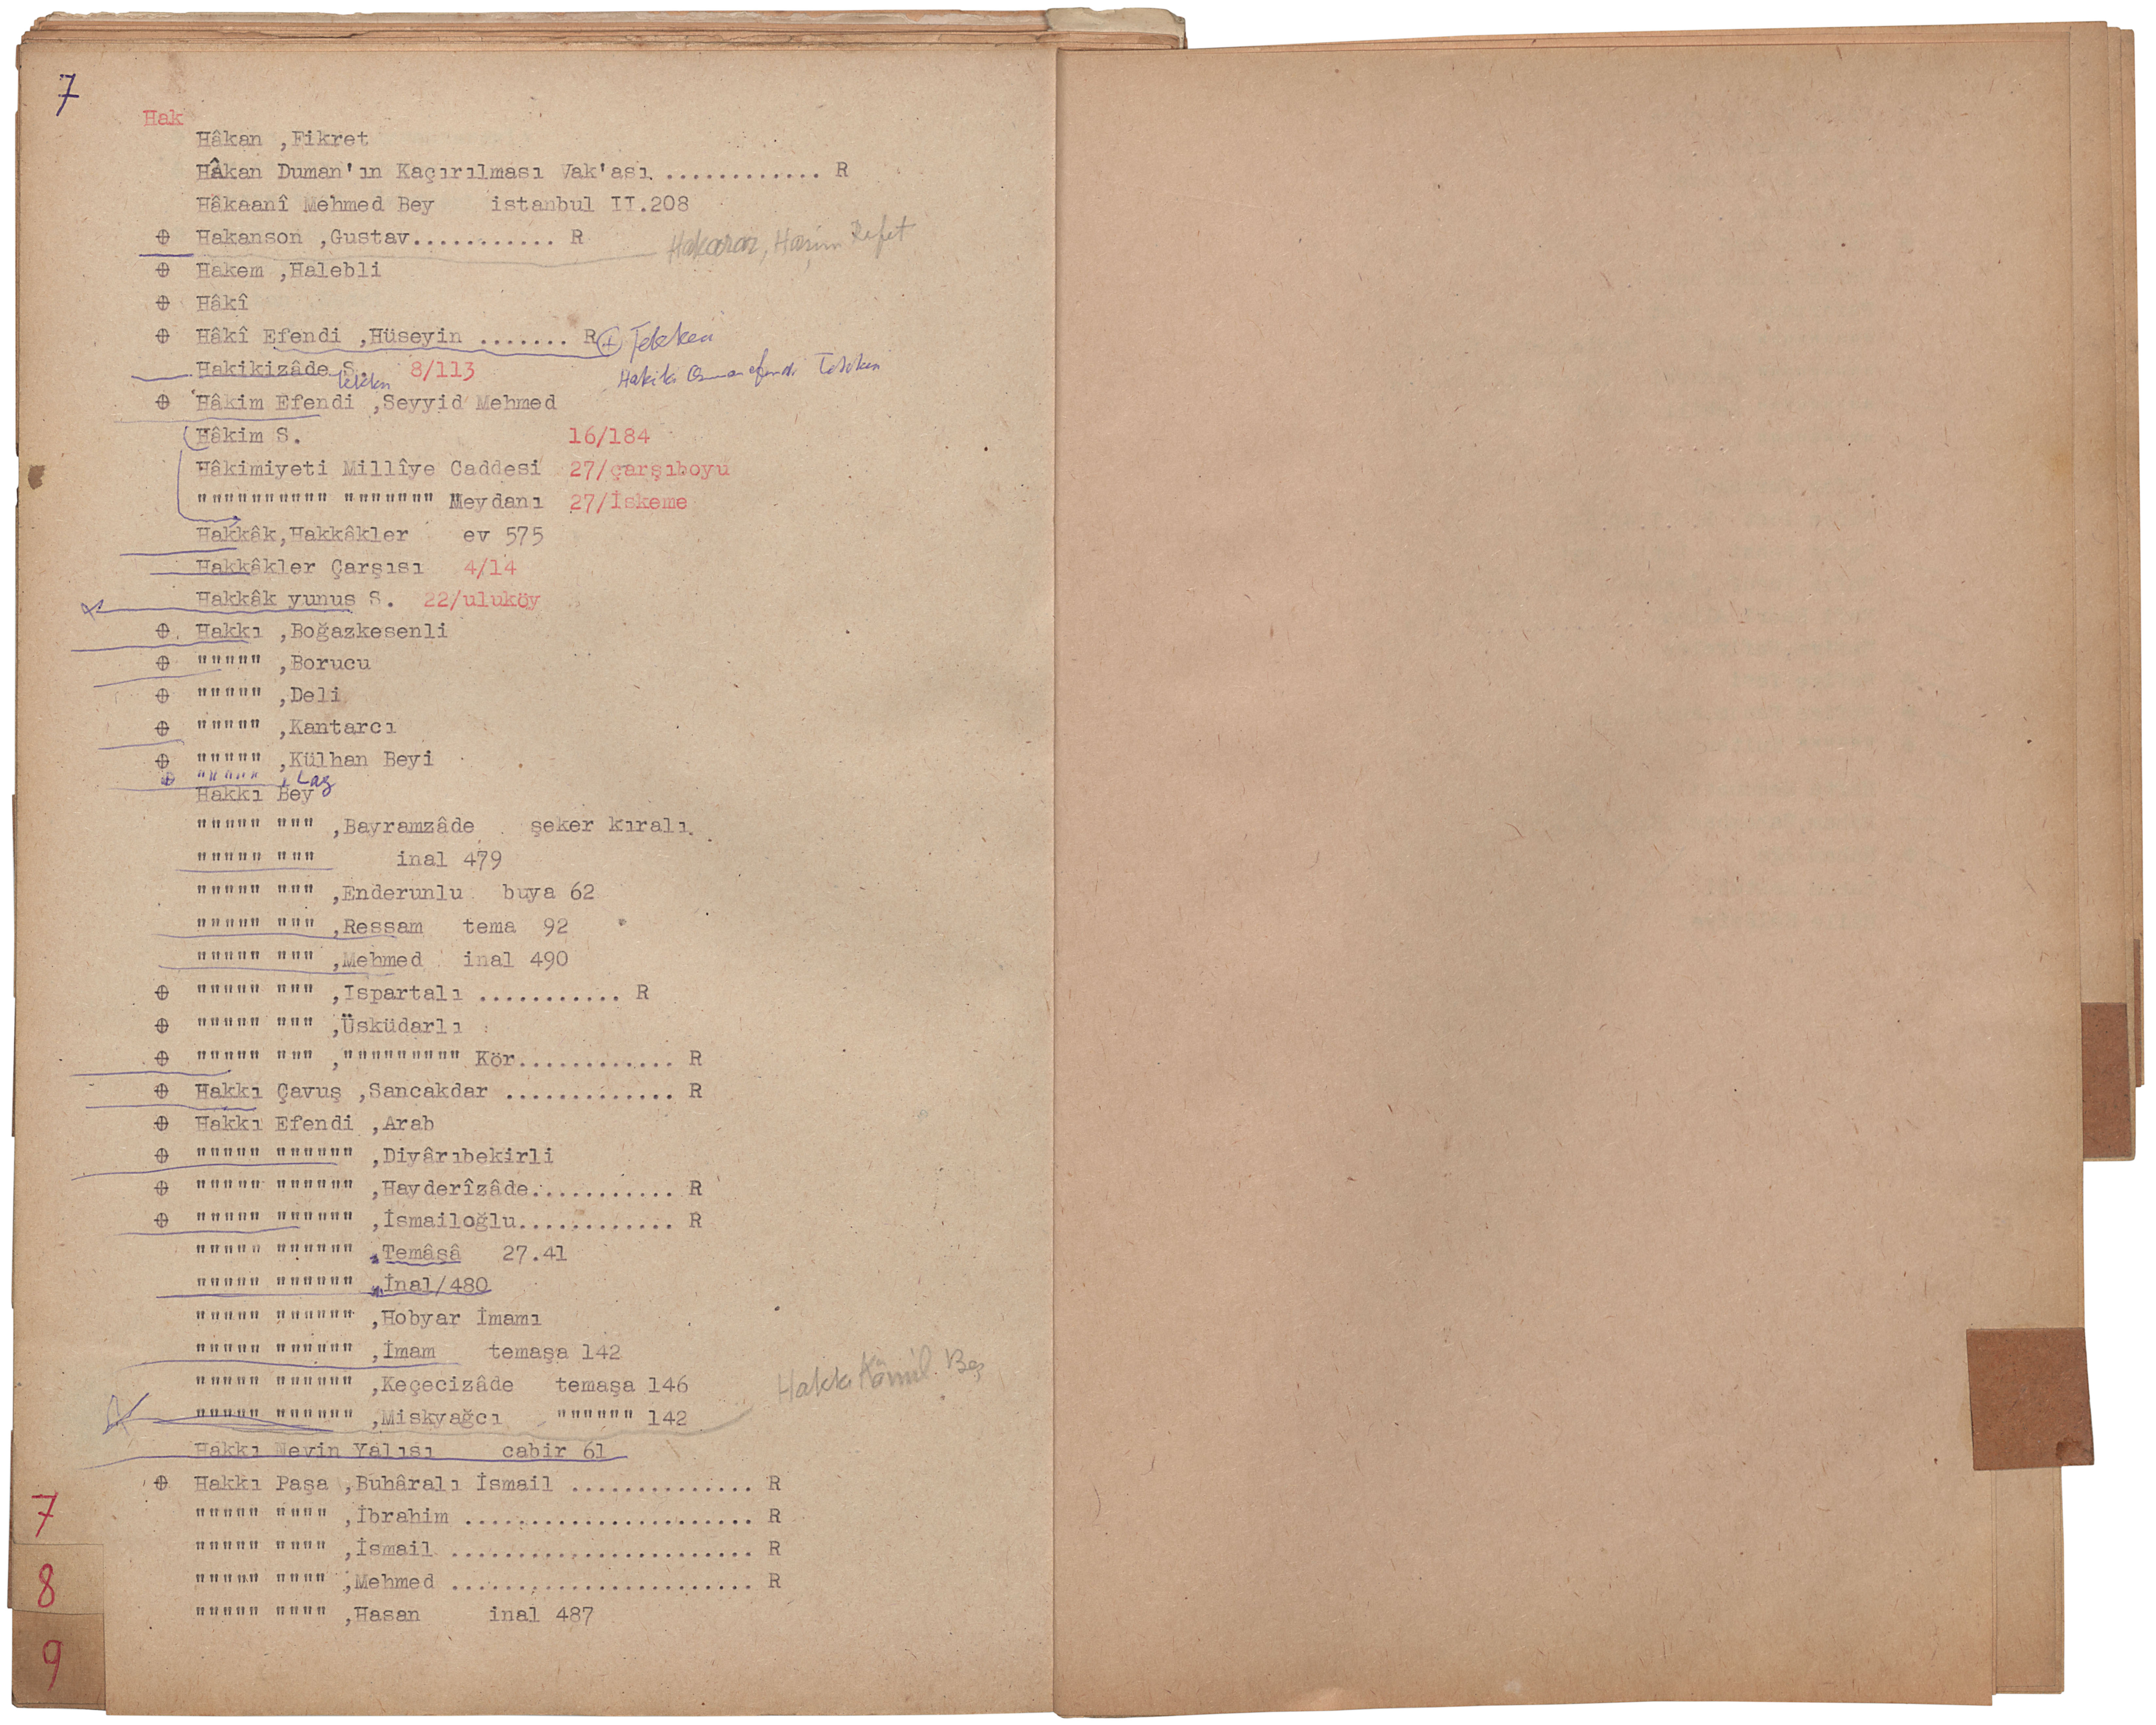 7
Hak
Hâkan ,Fikret
Hâkan Duman'ın Kaçırılması Vak'ası ............ R
Hâkaanî Mehmed Bey istanbul II.208
⊕ Hakanson ,Gustav........... R
Refet
⊕ Hakem ,Halebli
⊕ Hâkî
⊕ Hâkî Efendi ,Hüseyin ....... R ⊕ Tebeken
Hakikizâde S. 8/113
⊕ Hâkim Efendi ,Seyyid Mehmed
Hâkim S. 16/184
Hâkimiyeti Millîye Caddesi 27/çarşıboyu
"""""""""" """"""" Meydanı 27/İskeme
Hakkâk,Hakkâkler ev 575
Hakkâkler Çarşısı 4/14
Hakkâk yunus S. 22/uluköy
⊕ Hakkı ,Boğazkesenli
⊕ """"" ,Borucu
⊕ """"" ,Deli
⊕ """"" ,Kantarcı
⊕ """"" ,Külhan Beyi
⊕ """"" , Laz
Hakkı Bey
""""" """ ,Bayramzâde şeker kıralı
""""" """ inal 479
""""" """ ,Enderunlu buya 62
""""" """ ,Ressam tema 92
""""" """ ,Mehmed inal 490
⊕ """"" """ ,Ispartalı ........... R
⊕ """"" """ ,Üsküdarlı
⊕ """"" """ ,""""""""" Kör............ R
⊕ Hakkı Çavuş ,Sancakdar ............. R
⊕ Hakkı Efendi ,Arab
⊕ """"" """""" ,Diyârıbekirli
⊕ """"" """""" ,Hayderîzâde........... R
⊕ """"" """""" ,İsmailoğlu............ R
""""" """""" ,Temâşâ 27.41
""""" """""" ,İnal/480
""""" """""" ,Hobyar İmamı
""""" """""" ,İmam temaşa 142
""""" """""" ,Keçecizâde temaşa 146
Hakkı Kâmil Beş
""""" """""" ,Miskyağcı """""" 142
Hakkı Nevin Yalısı cabir 61
⊕ Hakkı Paşa ,Buhâralı İsmail .............. R
""""" """" ,İbrahim ...................... R
""""" """" ,İsmail ....................... R
""""" """" ,Mehmed ....................... R
""""" """" ,Hasan inal 487
7
8
9